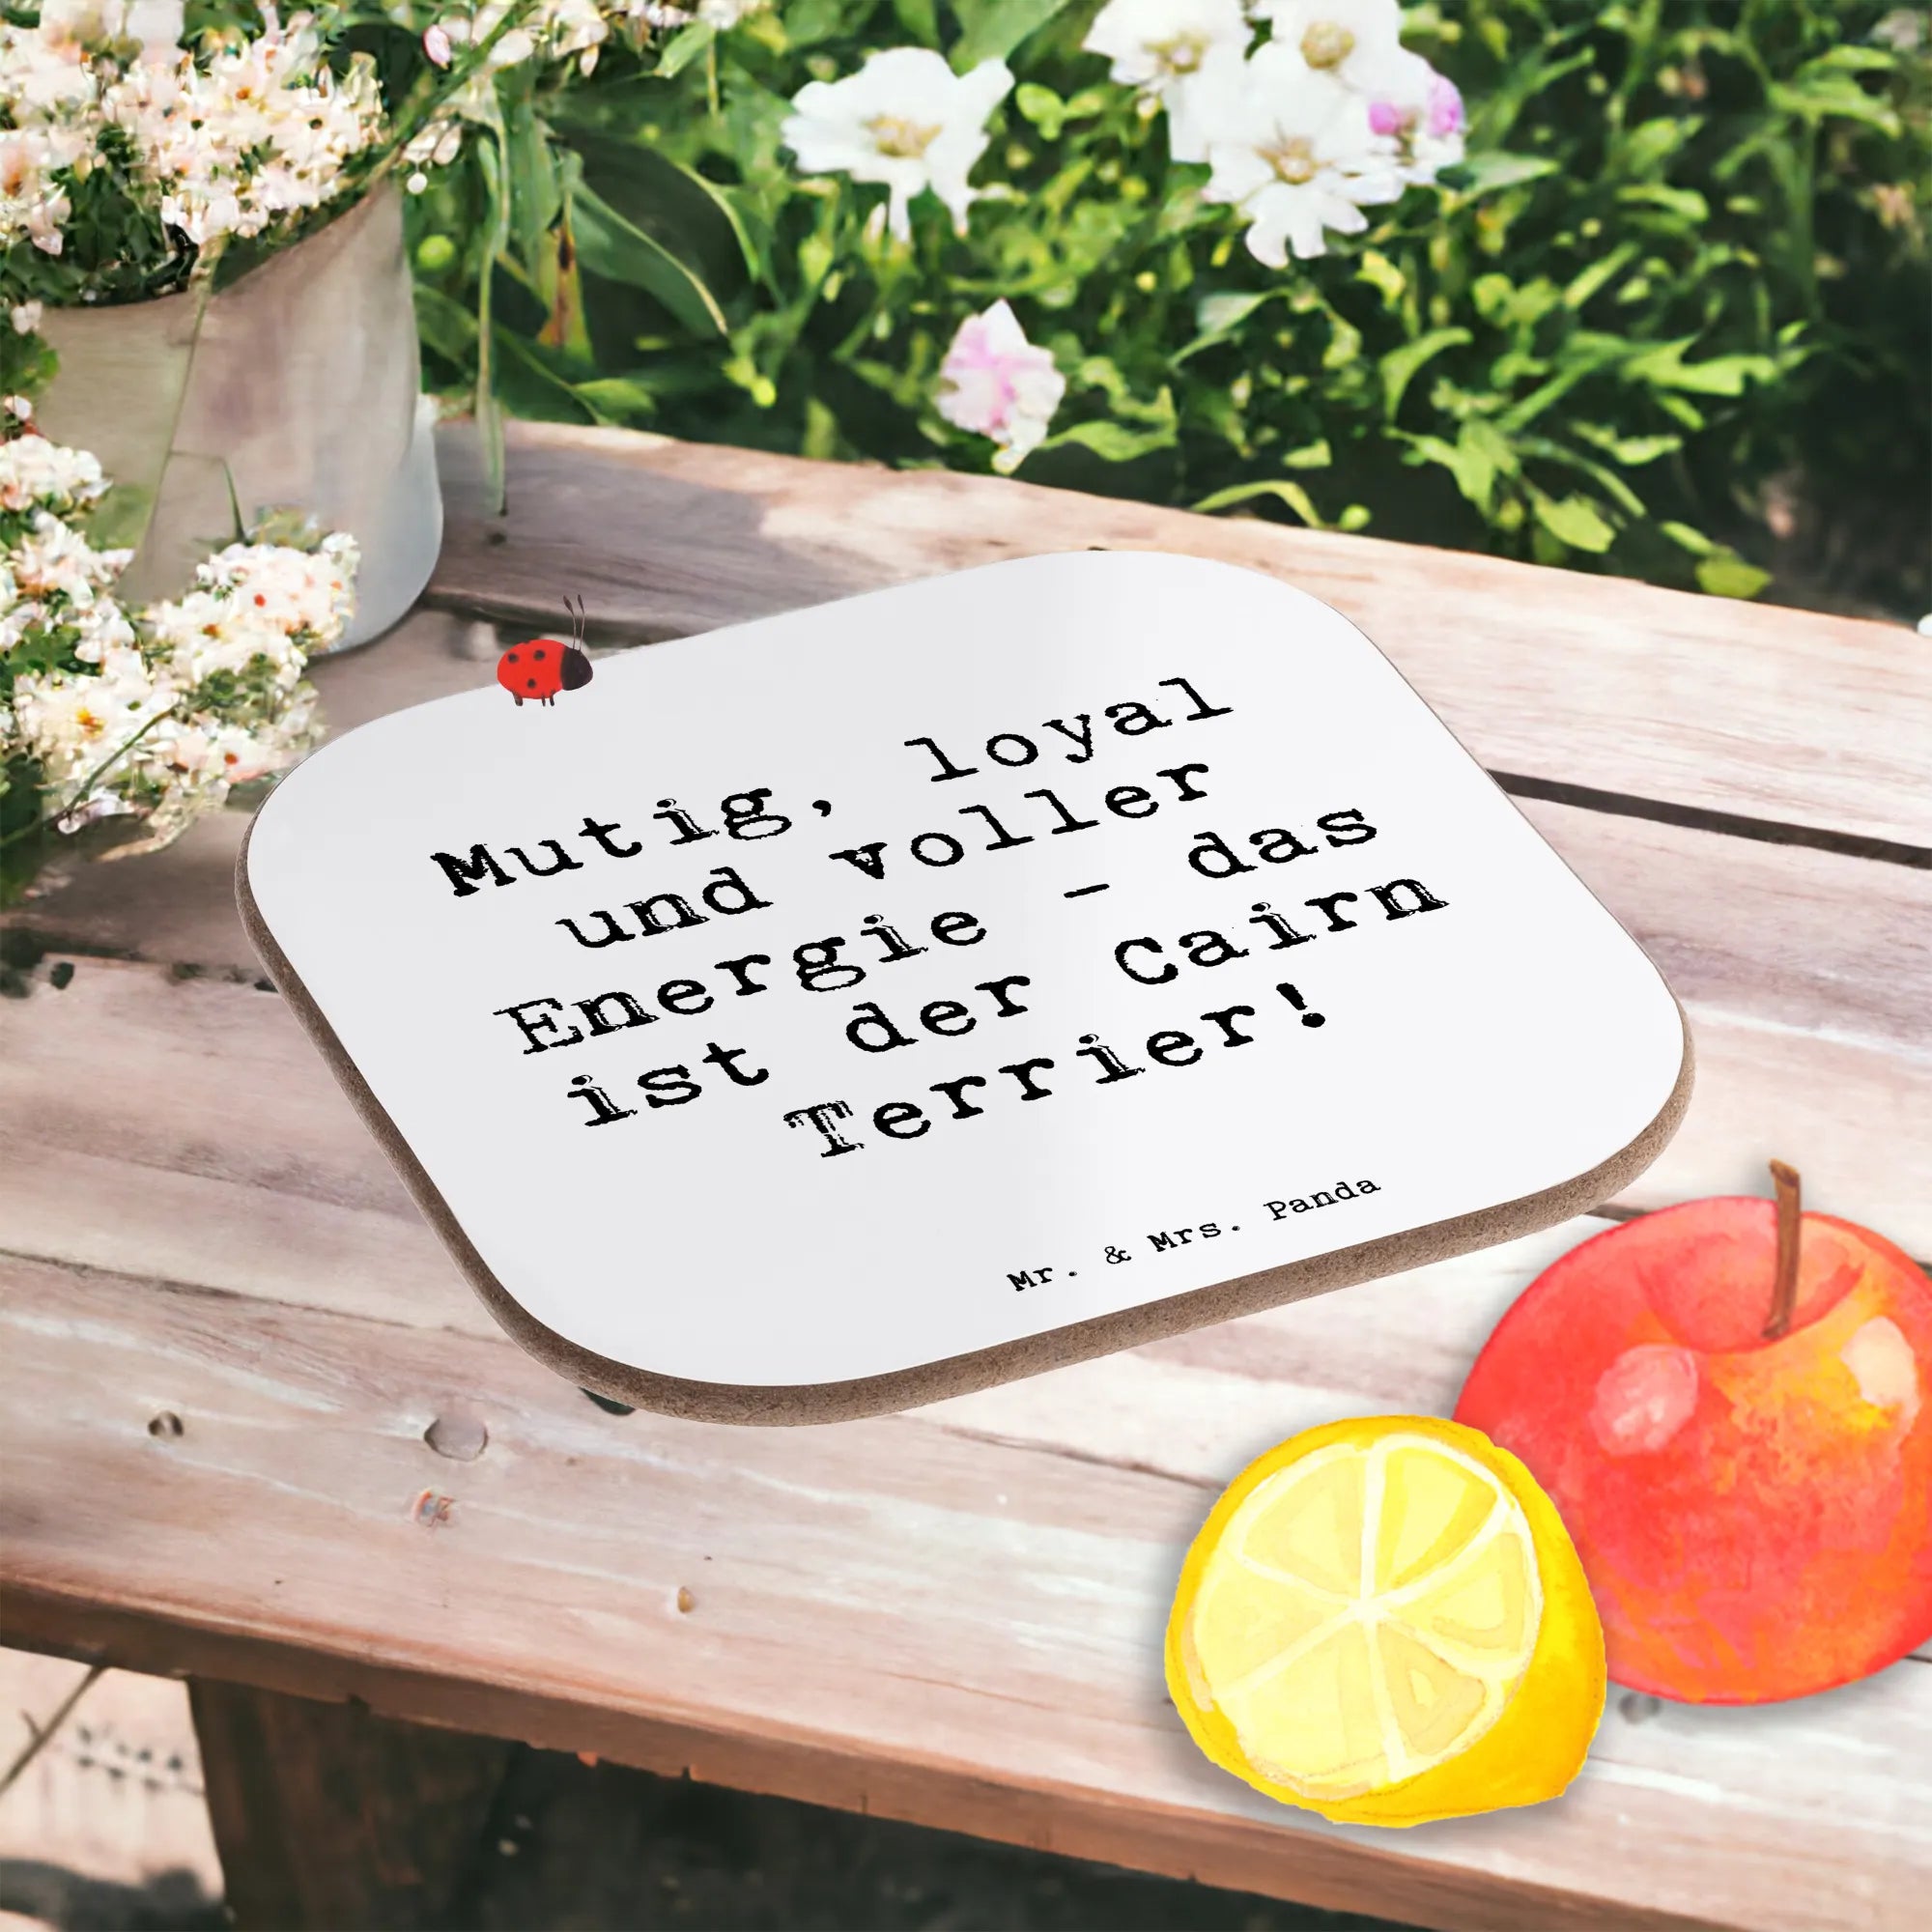 Mutig, loyal
und voller
Energie - das
ist der Cairn
Terrier!
Mr. & Mrs. Panda